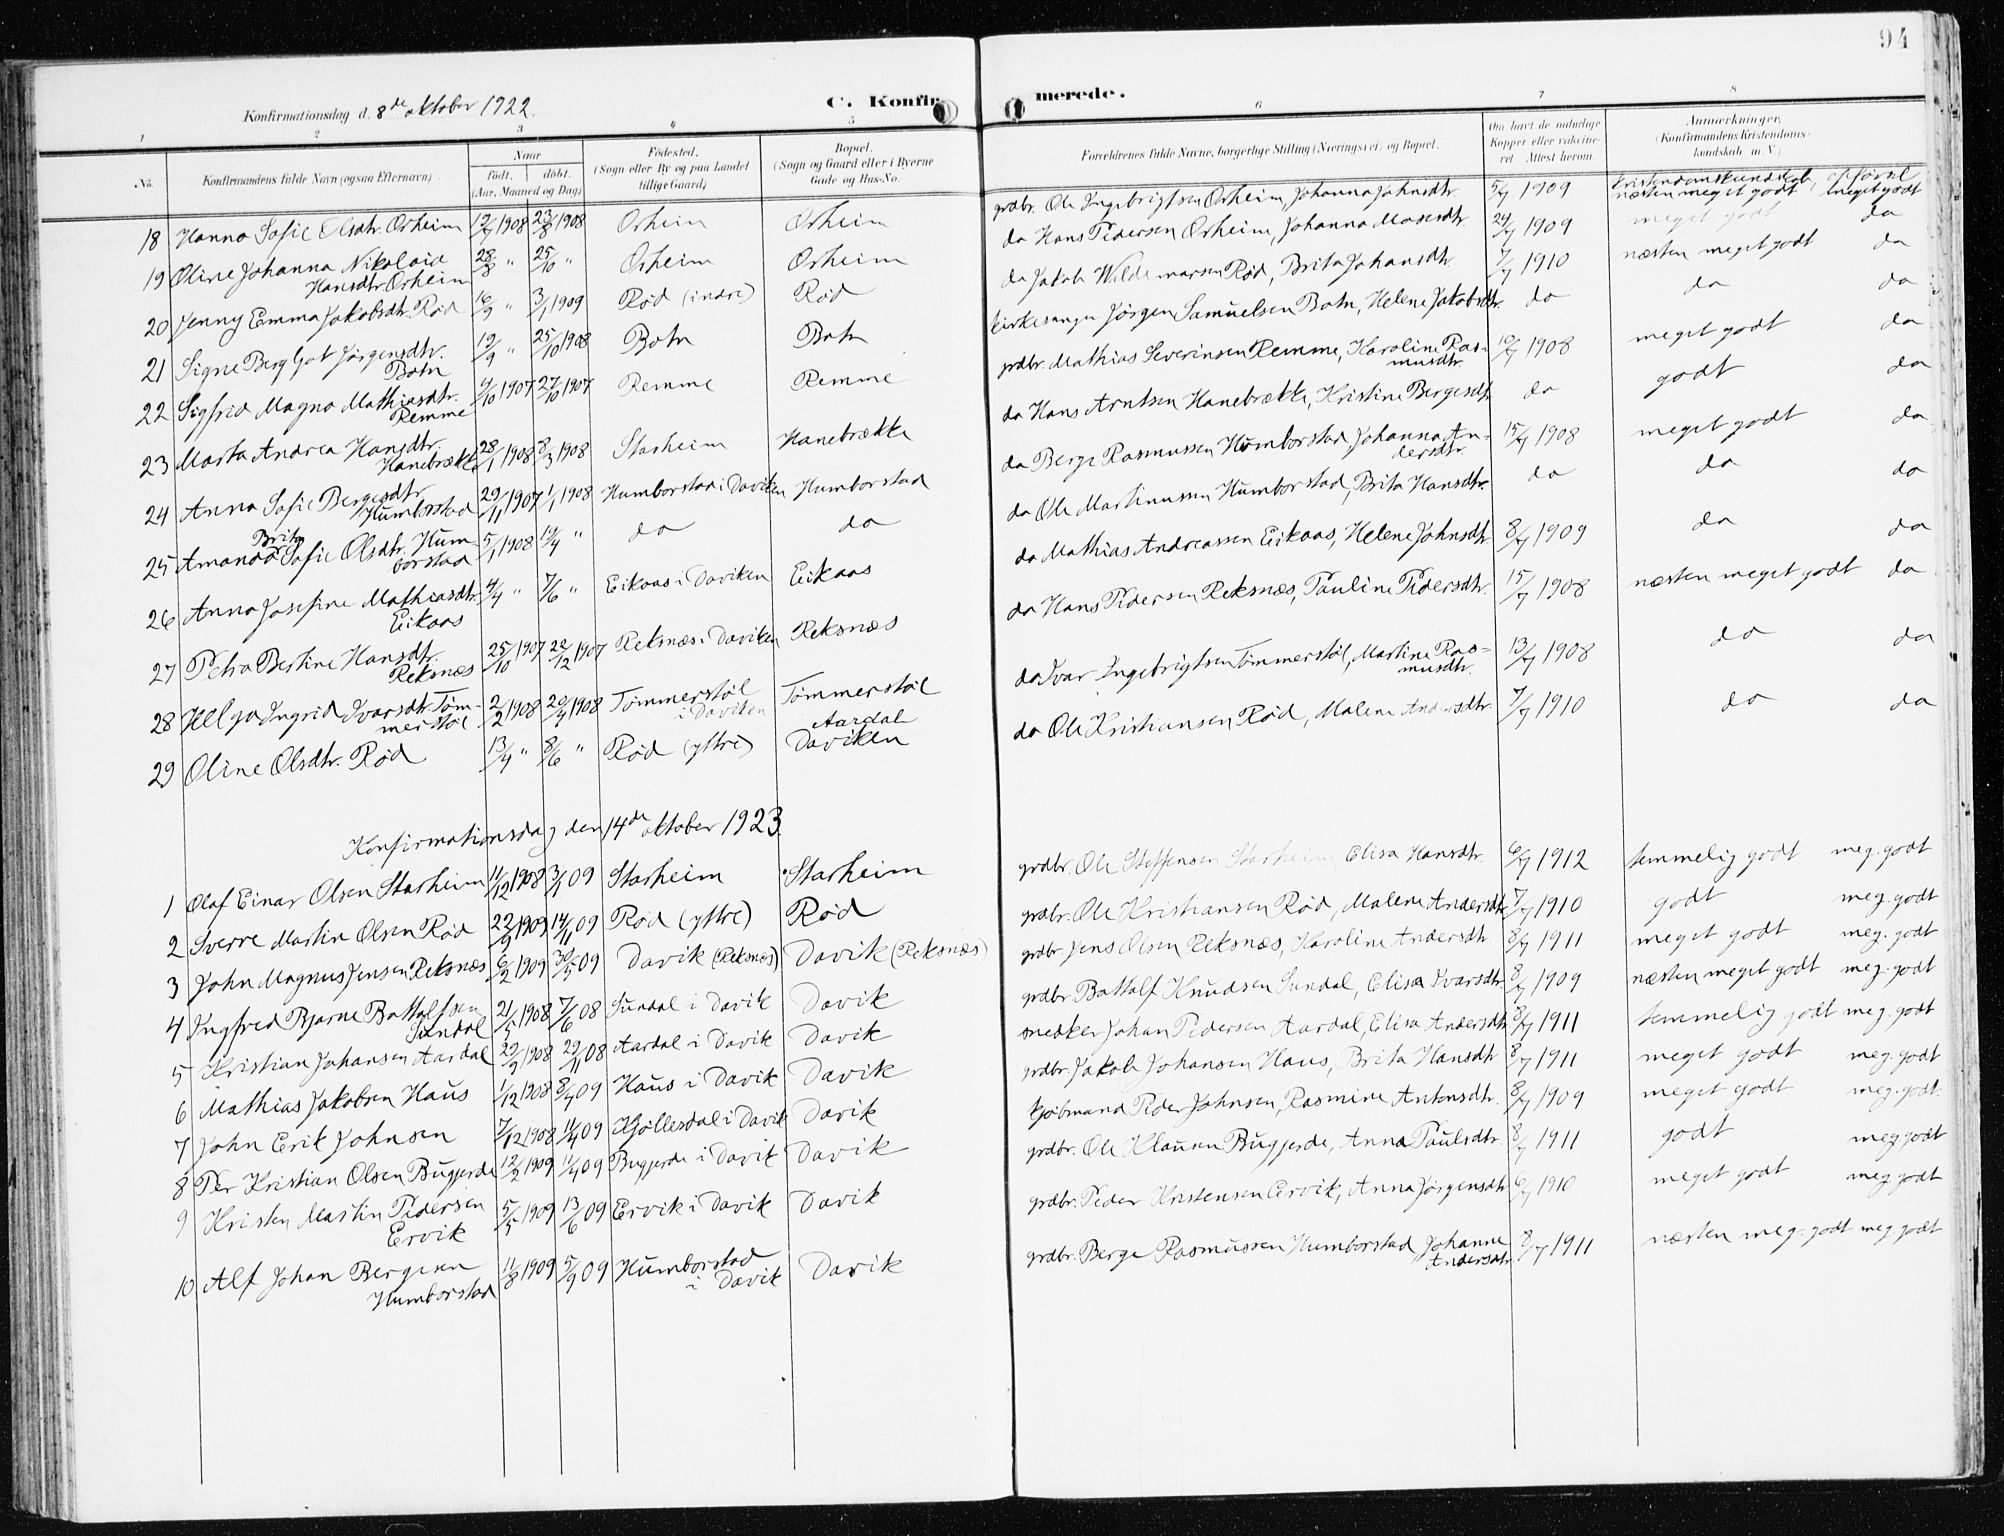 94
Konfirmationsdag d. 8de oktober 1922.
C. Konfir
merede.
1 2 3 4 5 6 7 8
No.
Konfirmandens fulde Navn (ogsaa Efternavn)
Naar
født. døbt.
(Aar, Maaned og Dag)
Fødested.
(Sogn eller By og paa Landet
tillige Gaard)
Bopæl.
(Sogn og Gaard eller i Byerne
Gade og Hus-No.
Forældrenes fulde Navne, borgerlige Stilling (Næringsvei) og Bopæl.
Om havt de naturlige
Kopper eller vaccine-
ret Attest herom.
Anmærkninger.
(Konfirmandens Kristendoms-
kundskab m. V.)
kristendomskundskab, opførsel
18 Hanna Sofie Olsdtr. Orheim 12/7 1908 23/8 1908 Orheim Orheim grdbr. Ole Ingebrigtsen Orheim, Johanna Johnsdtr. 5/7 1909 næsten meget godt meget godt
19 Oline Johanna Nikolaia 28/8 " 25/10 " Orheim Orheim do Hans Pedersen Orheim, Johanna Mosesdtr. 24/7 1909 meget godt do
Hansdtr. Orheim
20 Jenny Emma Jakobsdtr. Rød 16/9 " 3/1 1909 Rød (indre) Rød do Jakob Wildemarsen Rød, Brita Johansdtr. 7/7 1910 næsten meget godt do
21 Signe Bergljot Jørgensdtr. 19/9 " 25/10 1908 Botn Botn kirkesanger Jørgen Samuelsen Botn, Helene Jakobsdtr. do do do
Botn
22 Sigfrid Magna Mathiasdtr. 4/10 1907 27/10 1907 Remme Remme grdbr. Mathias Severinsen Remme, Karoline Ras- 10/7 1908 meget godt do
Remme musdtr.
23 Marta Andrea Hansdtr. 28/1 1908 8/3 1908 Starheim Hanebrække do Hans Arntsen Hanebrække, Kristine Bergesdtr. do godt do
Hanebrække
24 Anna Sofie Bergesdtr. 29/11 1907 1/1 1908 Humborstad i Daviken Humborstad do Berge Rasmussen Humborstad Johanna An- 15/7 1908 meget godt do
Humborstad dersdtr.
Brita
25 Amanda Sofie Olsdtr. Hum 5/1 1908 19/4 " do do do Ole Martinussen Humborstad, Brita Hansdtr. do do do
borstad
26 Anna Josefine Mathiasdtr. 4/4 " 7/6 " Eikaas i Daviken Eikaas do Mathias Andreassen Eikaas, Helene Johnsdtr. 8/7 1909 do do
Eikaas
27 Petra Bertine Hansdtr. 25/10 1907 22/12 1907 Reksnæs i Daviken Reksnæs do Hans Pedersen Reksnæs, Pauline Pedersdtr. 15/7 1908 næsten meget godt do
Reksnæs
28 Helga Ingrid Ivarsdtr. Tøm- 2/2 1908 20/4 1908 Tømmerstøl Tømmerstøl do Ivar Ingebrigtsen Tømmerstøl, Martine Ras- 13/7 1908 do do
merstøl i Daviken musdtr.
Aardal
29 Oline Olsdtr. Rød 13/4 " 8/6 " Rød (yttre) Daviken do Ole Kristiansen Rød, Malene Andersdtr. 7/7 1910 do do
Konfirmationsdag den 14de oktober 1923.
1 Olaf Einar Olsen Starheim 11/12 1908 3/1 09 Starheim Starheim grdbr. Ole Steffensen Starheim Elisa Hansdtr. 6/7 1912 temmelig godt meg. godt
2 Sverre Martin Olsen Rød 22/9 1909 14/11 09 Rød (yttre) Rød grdbr. Ole Kristiansen Rød, Malene Andersdtr. 7/7 1910 godt meg. godt
3 John Magnus Jensen Reksnæs 6/2 1909 30/5 09 Davik (Reksnæs) Davik (Reksnæs) grdbr. Jens Olsen Reksnæs, Karoline Andersdtr. 8/7 1911 meget godt meg. godt
4 Ingfred Bjarne Bottolfsen 21/5 1908 7/6 08 Sundal i Davik Davik grdbr. Bottolf Knudsen Sundal, Elisa Ivarsdtr. 8/7 1909 næsten meget godt meg. godt
Sundal
5 Kristian Johansen Aardal 20/9 1908 29/11 08 Aardal i Davik Davik snedker Johan Pedersen Aardal, Elisa Andersdtr. 8/7 1911 temmelig godt meg. godt
6 Mathias Jakobsen Haus 1/12 1908 8/4 09 Haus i Davik Davik grdbr. Jakob Johansen Haus, Brita Hansdtr. 8/7 1911 meget godt meg. godt
7 John Erik Johnsen 7/12 1908 11/4 09 Hjøllesdal i Davik Davik kjøbmand Peder Johnsen, Rasmine Antonsdtr. 8/7 1909 meget godt meg. godt.
8 Per Kristian Olsen Bugjerde 12/2 1909 11/4 09 Bugjerde i Davik Davik grdbr. Ole Klausen Bugjerde, Anna Paulsdtr. 8/7 1911 godt meg. godt
9 Kristen Martin Pedersen 5/5 1909 13/6 09 Ervik i Davik Davik grdbr. Peder Kristensen Ervik, Anna Jørgensdtr. 6/7 1910 meget godt meg. godt
Ervik
10 Alf Johan Bergesen 11/8 1909 5/9 09 Humborstad Davik grdbr. Berge Rasmussen Humborstad Johanne 8/7 1911 næsten meg. godt meg. godt
Humborstad i Davik Andersdtr.